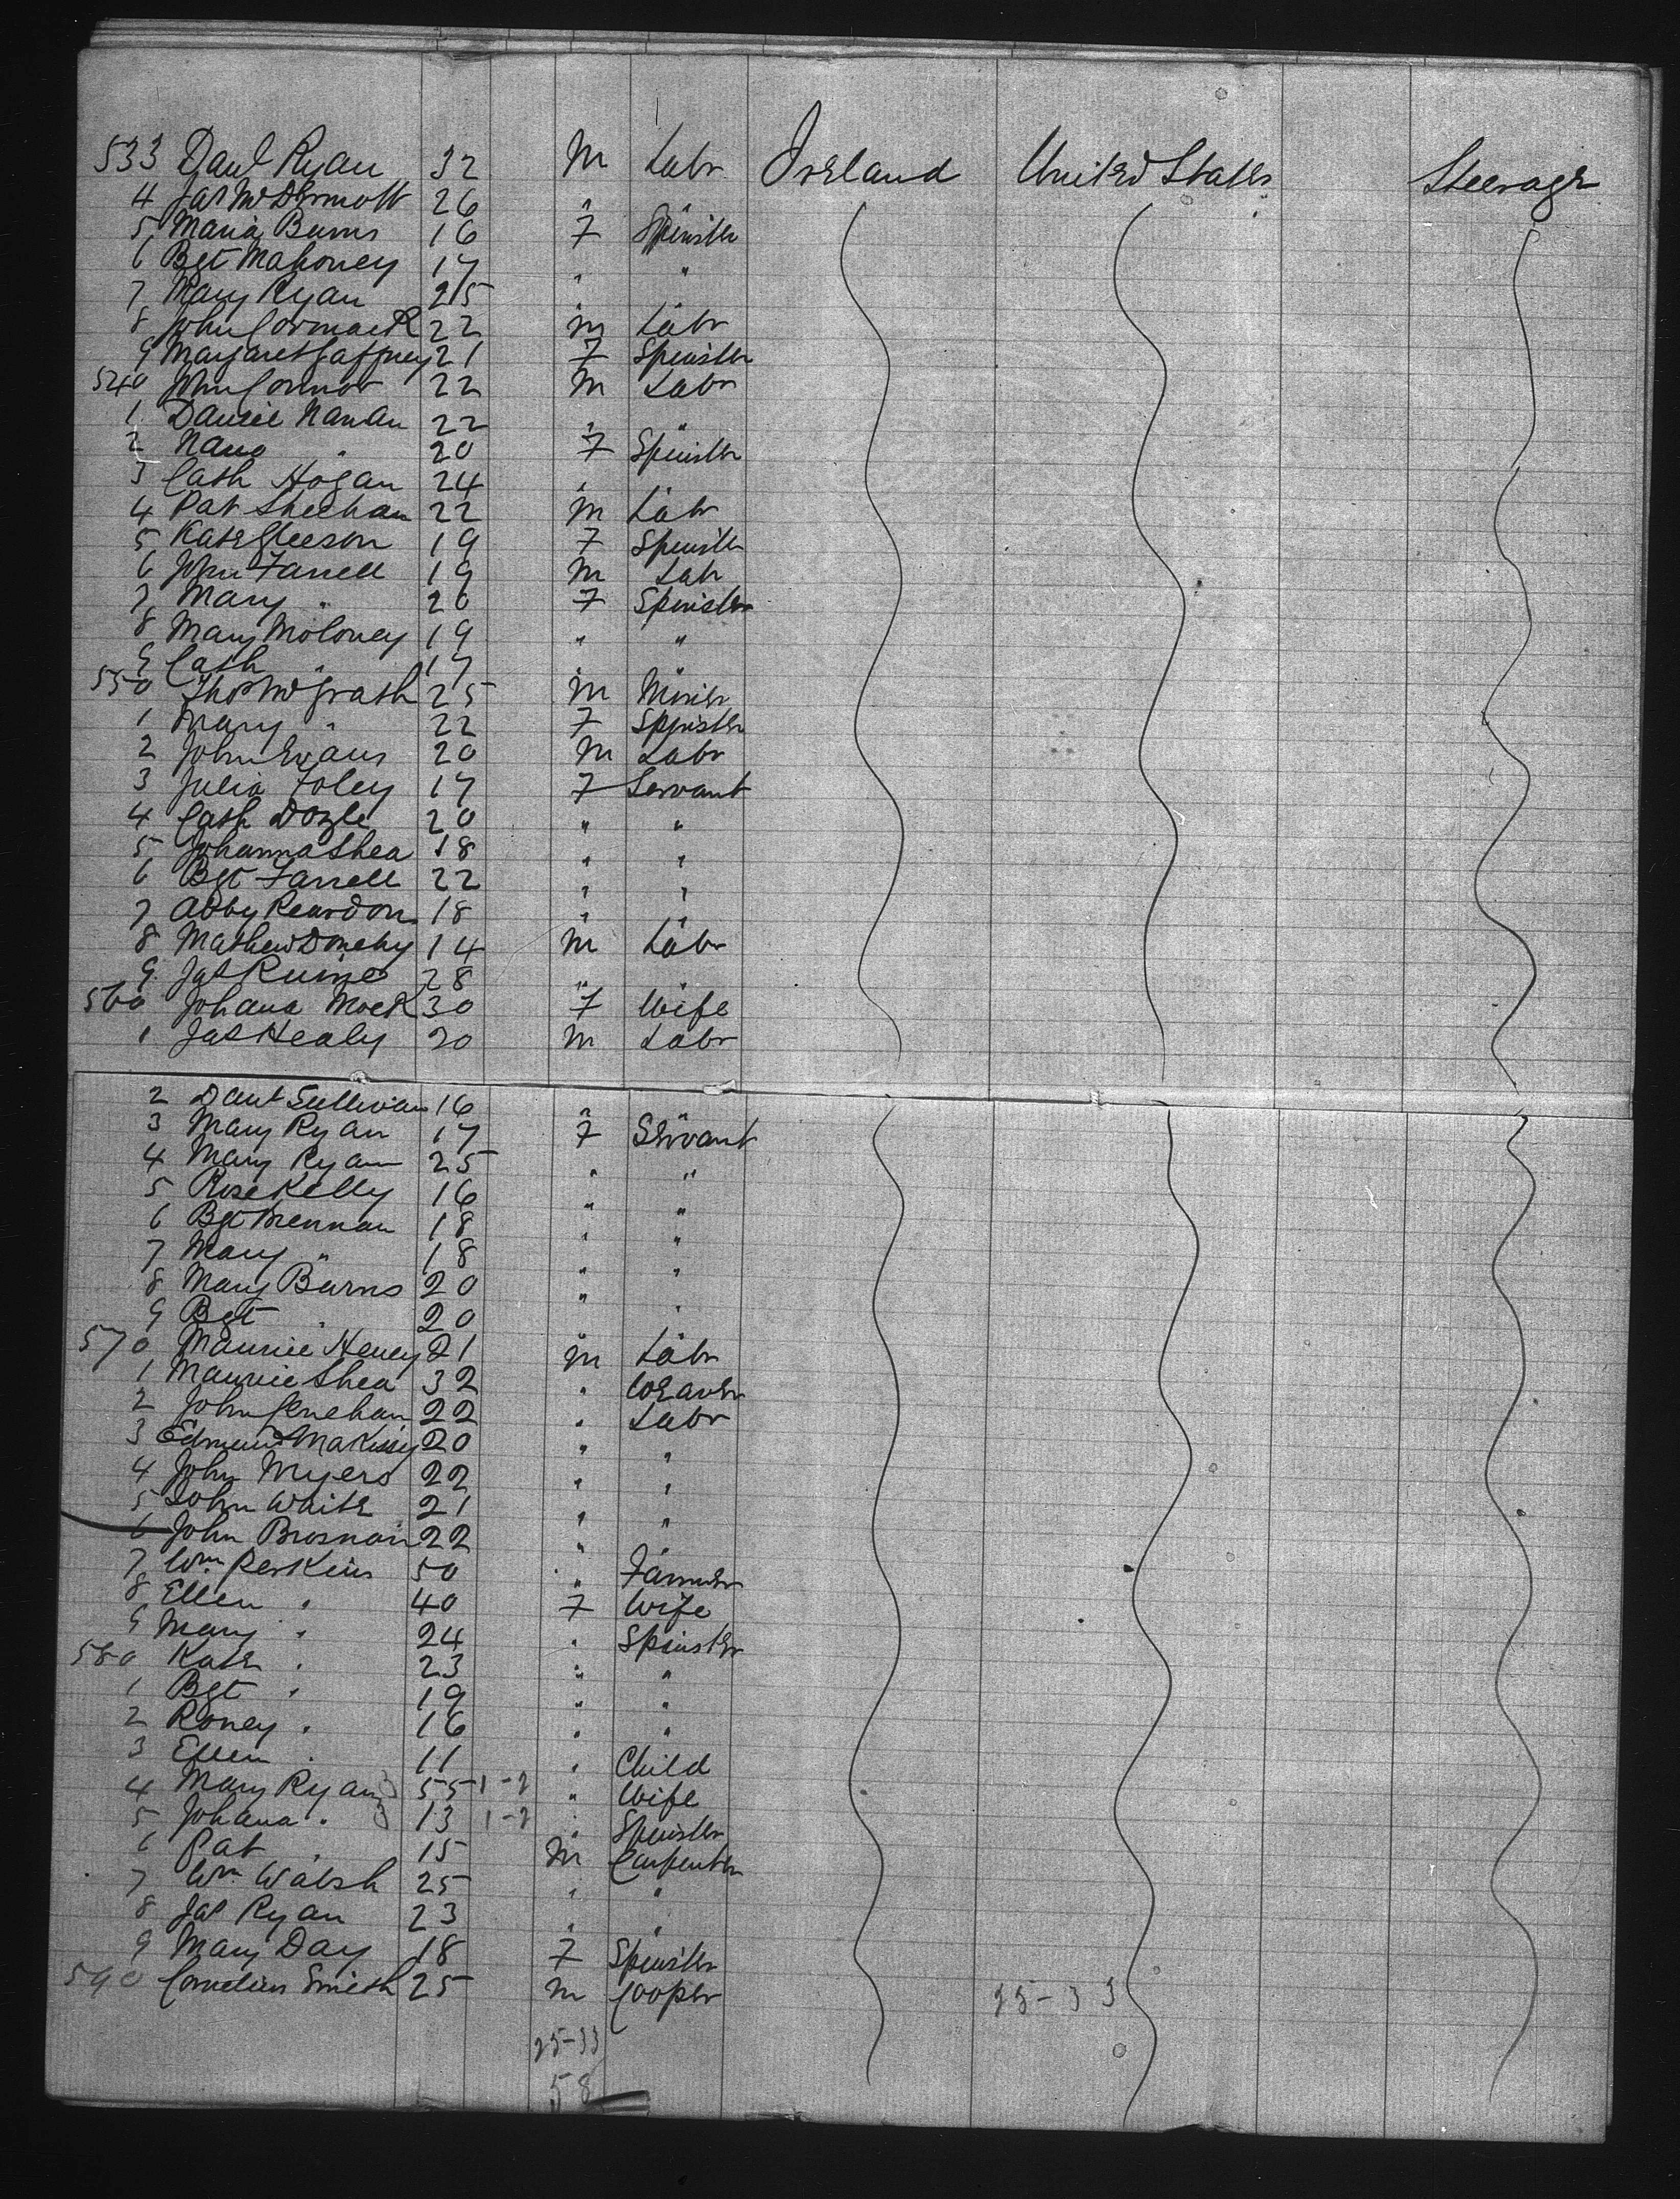 533 Danl Ryan 32 M Labr Ireland United States Steerage
4 Jas McDermott 26 "
5 Maria Burns 16 F Spinster
6 Bgt Mahoney 17 " "
7 Mary Ryan 25 "
8 John Cormack 22 M Labr
9 Margaret Gaffney 21 F Spinster
540 John Connor 22 M Labr
1 Daniel Nanan 22 " "
2 Nano " 20 F Spinster
3 Cath Hogan 24 "
4 Pat Sheehan 22 M Labr
5 Kate Gleeson 19 F Spinster
6 John Farrell 19 M Labr
7 Mary " 20 F Spinster
8 Mary Moloney 19 " "
9 Cath " 17 " "
550 Thos McGrath 25 M Miner
1 Mary " 22 F Spinster
2 John Evans 20 M Labr
3 Julia Foley 17 F Servant
4 Cath Doyle 20 " "
5 Johanna Shea 18 " "
6 Bgt Farrell 22 " "
7 Abby Reardon 18 " "
8 Mathew Donohy 14 M Labr
9 Jas 28 " "
560 Johana Mock 30 F Wife
1 Jas Healy 20 M Labr
2 Danl Sullivan 16 " "
3 Mary Ryan 17 F Servant
4 Mary Ryan 25 " "
5 Rose Kelly 16 " "
6 Bgt Brennan 18 " "
7 Mary " 18 " "
8 Mary Burns 20 " "
9 Bgt " 20 " "
570 Maurice Heney 21 M Labr
1 Maurice Shea 32 " Weaver
2 John Lenehan 22 " Labr
3 Edmund 20 " "
4 John Myers 22 " "
5 John White 21 " "
6 John Brosnan 22 " "
7 Wm Perkins 50 " Farmer
8 Ellen " 40 F Wife
9 Mary " 24 " Spinster
580 Kate " 23 " "
1 Bgt " 19 " "
2 Roney " 16 " "
3 Ellen " 11 " Child
4 Mary Ryan 3 55 1-2 " Wife
5 Johana " 3 13 1-2 " Spinster
6 Pat " 15 M Carpenter
7 Wm Walsh 25 " "
8 Jas Ryan 23 " "
9 Mary Day 18 F Spinster
590 Cornelius Smith 25 M Cooper 25-33
25-33
58